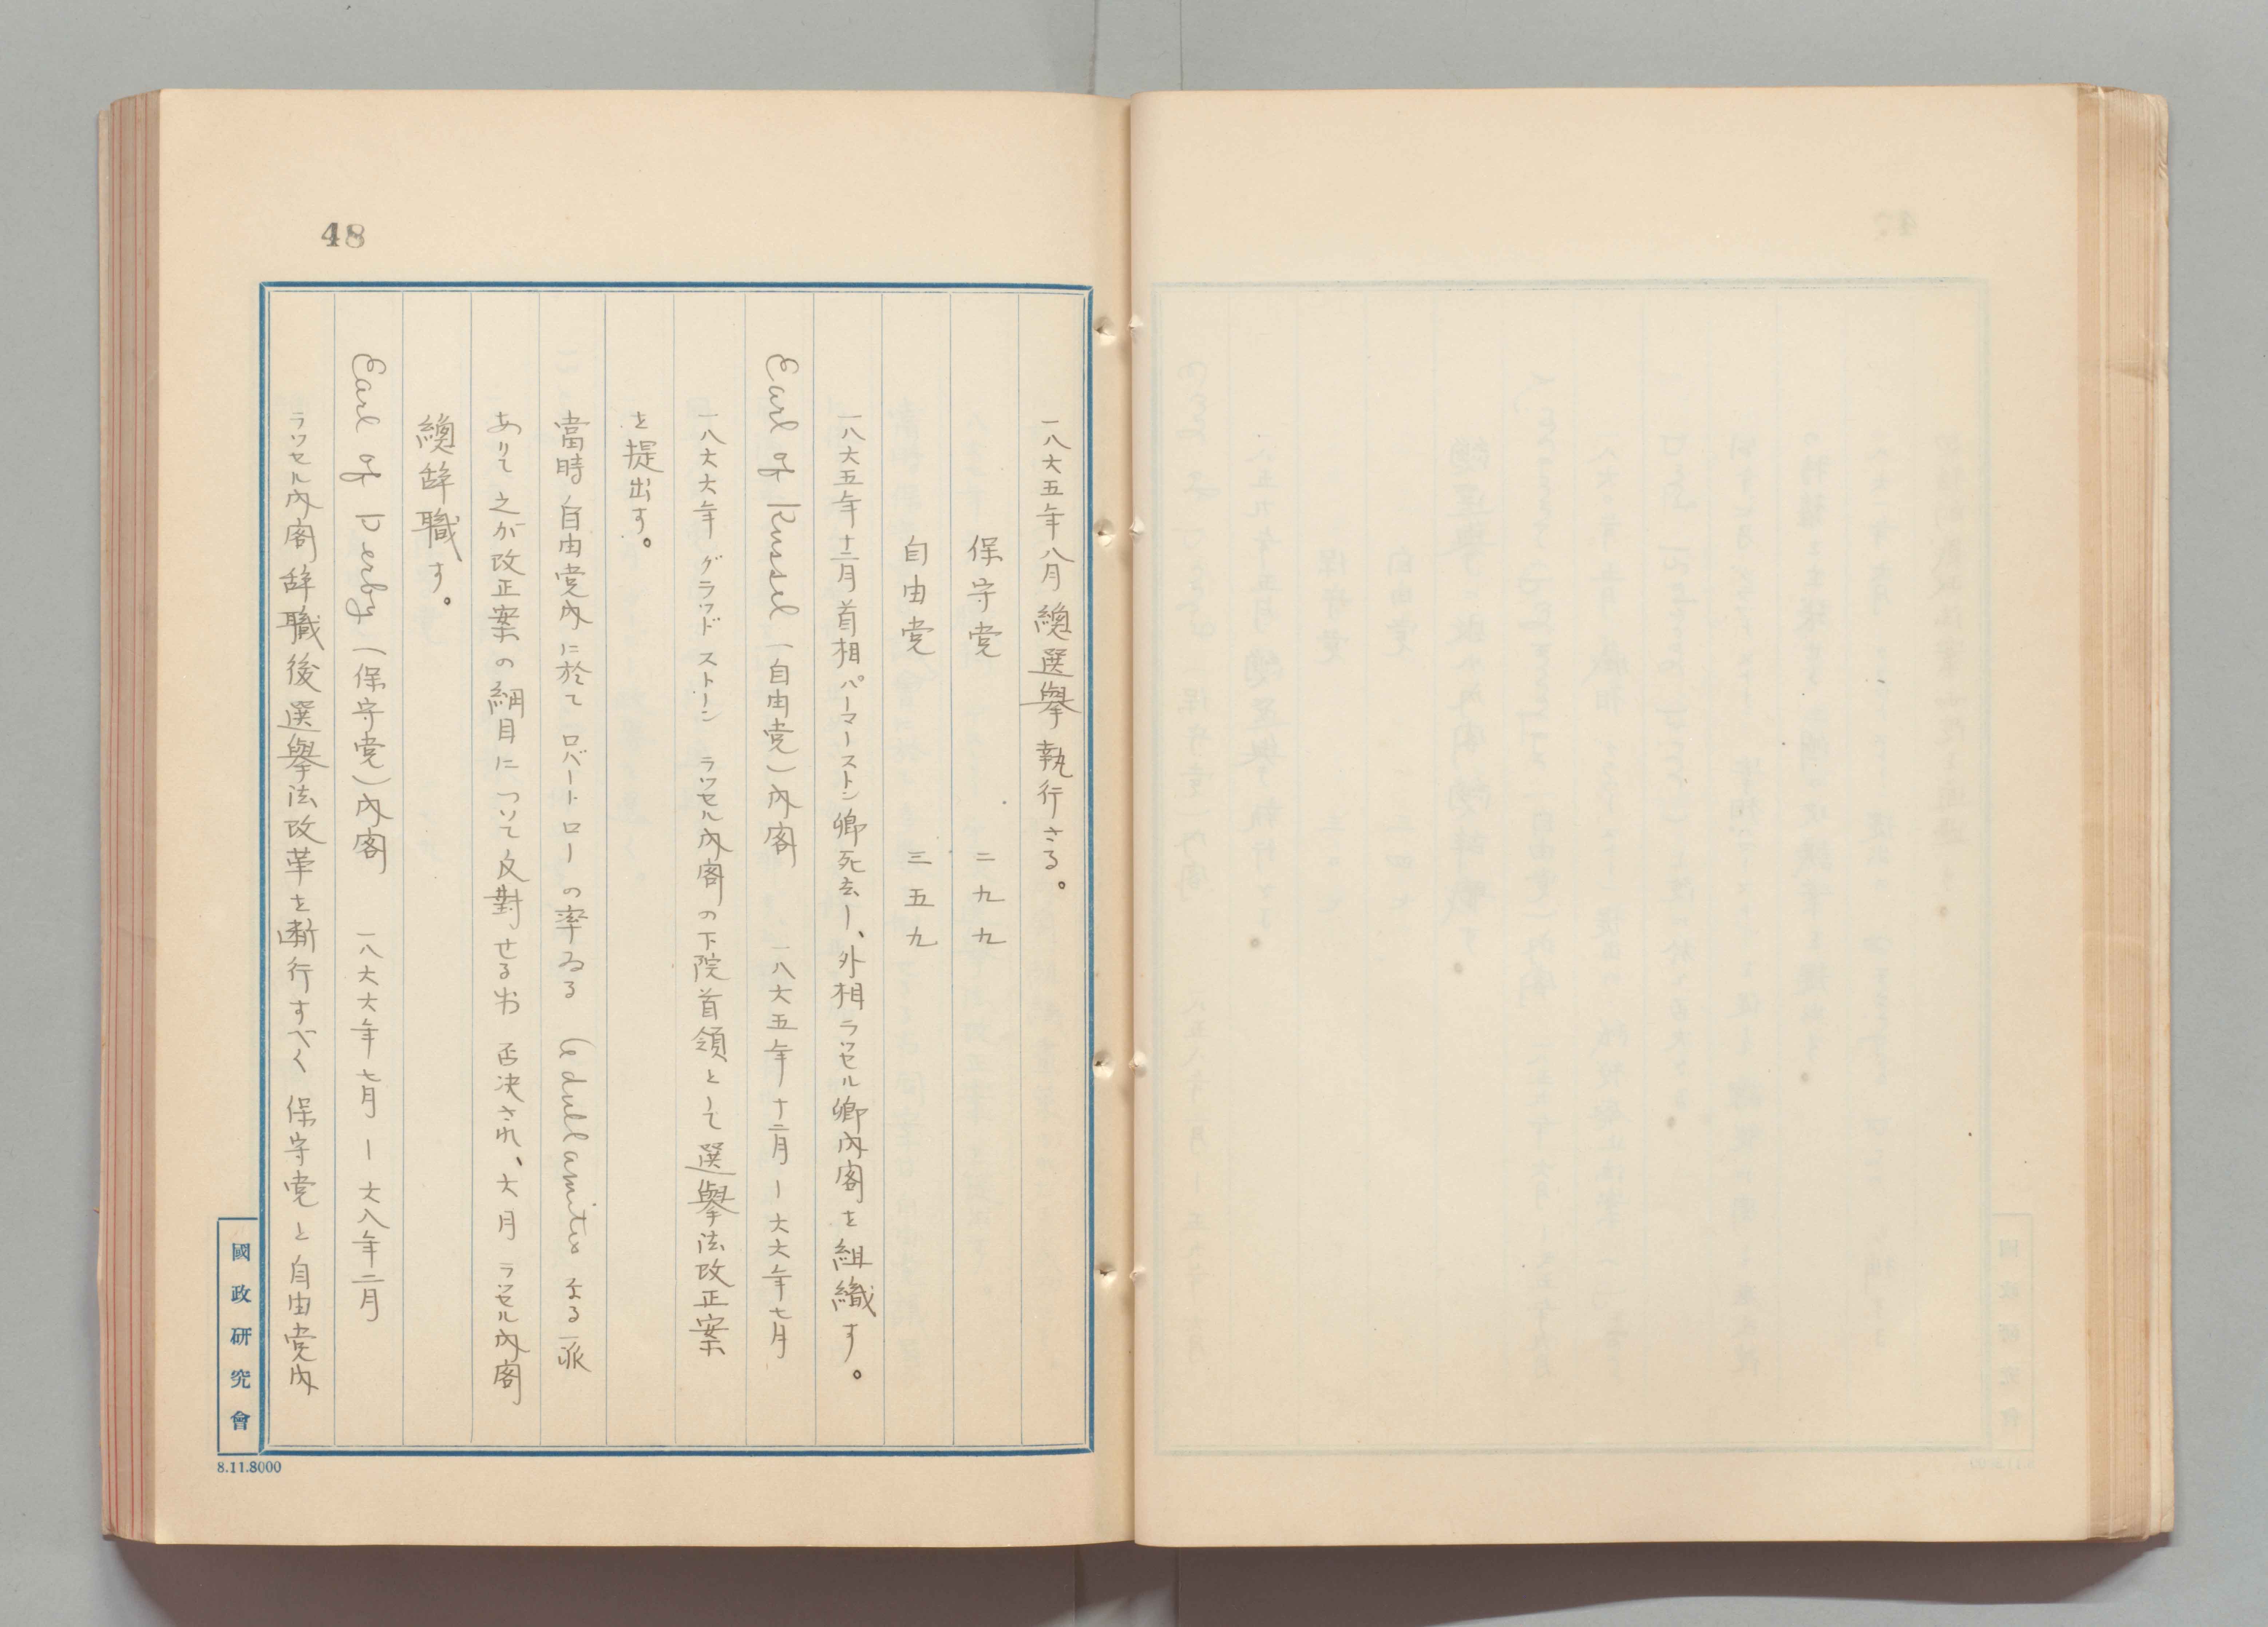 48
一八六五年八月總選擧執行さる。
保守党　二九九
自由党　三五九
一八六五年十二月首相パーマーストン卿死去し、外相ラッセル卿內客を組織す。
Earl of Russel（自由党）內客　一八六五年十二月ー六六年七月
一八六六年グラッドストーン ラッセル內客の下院首領として選擧法改正案
を提出す。
當時自由党內に於てロバートローの率ゐる Edullamites なる一派
ありて之が改正案の細目について反對せる為 否決され、六月ラッセル內客
總辞職す。
Earl of Derby（保守党）內客　一八六六年七月ー六八年二月
ラッセル內客辞職後選擧法改革を断行すべく保守党と自由党內
國政研究會
8.11.8000